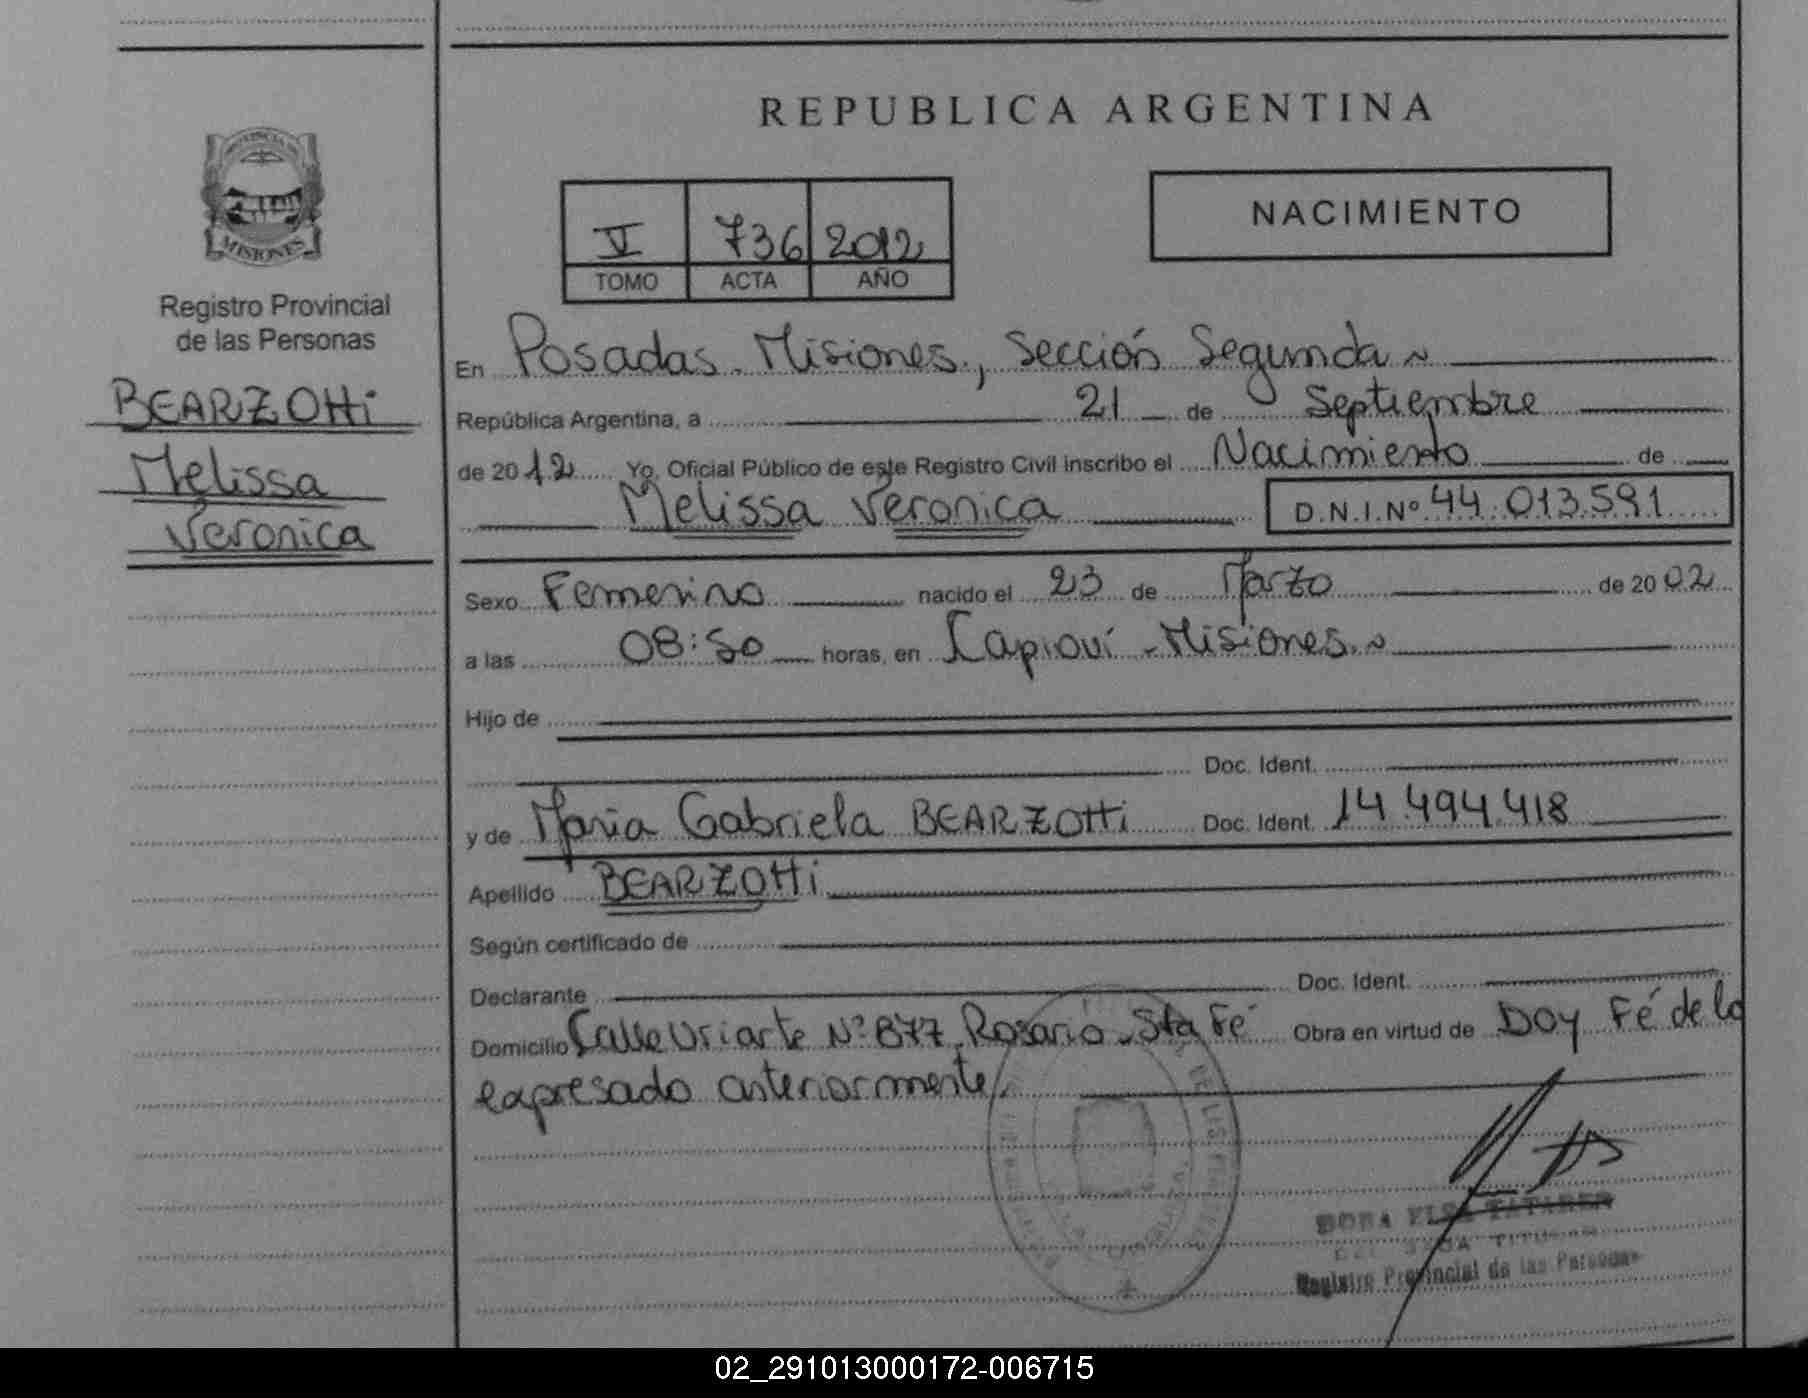 REPUBLICA ARGENTINA
PROVINCIA DE
MISIONES
Registro Provincial
de las Personas
BEARZOtti
Melissa
Veronica
V 736 2012
TOMO ACTA AÑO
NACIMIENTO
En Posadas. Misiones, Sección Segunda
República Argentina, a 21 de Septiembre
de 2012 Yo, Oficial Público de este Registro Civil inscribo el Nacimiento de
Melissa Veronica D.N.I.Nº 44.013.591
Sexo Femenino nacido el 23 de Marzo de 2002
a las 08:50 horas, en Capioví - Misiones.
Hijo de
Doc. Ident.
y de Maria Gabriela BEARZOtti Doc. Ident. 14.494.418
Apellido BEARZOtti
Según certificado de
Declarante Doc. Ident.
Domicilio Calle Uriarte Nº 877. Rosario - Sta Fé Obra en virtud de Doy Fé de lo
expresado anteriormente.
Registro Provincial de las Personas
02_291013000172-006715